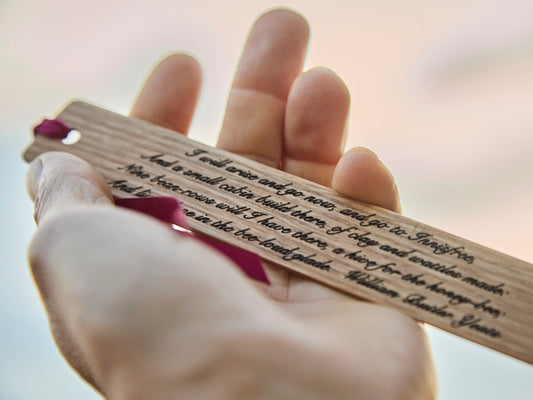 I will arise and go now, and go to Innisfree,
And a small cabin build there, of clay and wattles made:
Nine bean-rows will I have there, a hive for the honey-bee,
And in the bee-loud glade. William Butler Yeats